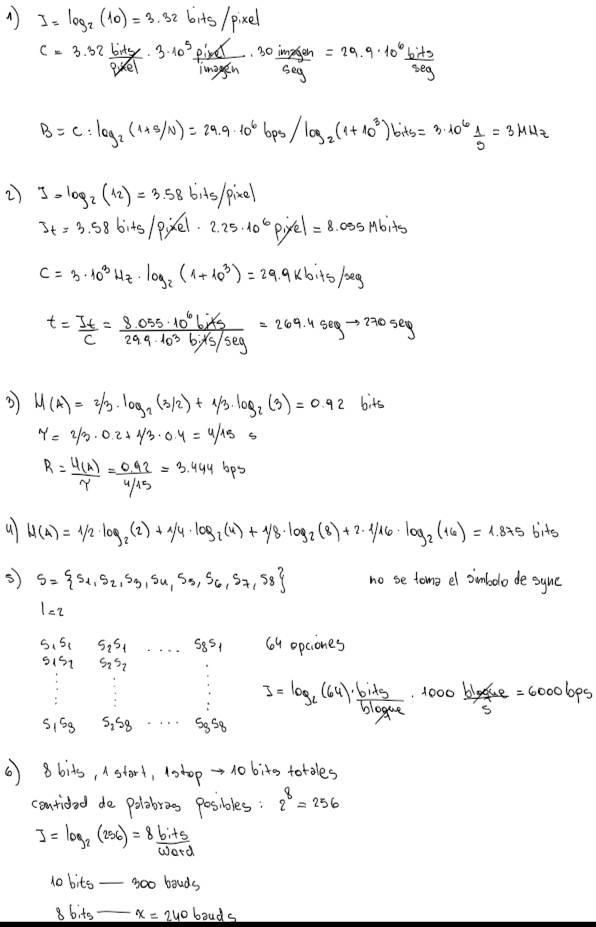 1) I = log₂(10) = 3.32 bits/pixel
C = 3.32 bits/pixel · 3·10⁵ pixel/imagen · 30 imagen/seg = 29.9·10⁶ bits/seg
B = C : log₂(1+S/N) = 29.9·10⁶ bps / log₂(1+10³) bits = 3·10⁶ 1/s = 3 MHz
2) I = log₂(12) = 3.58 bits/pixel
It = 3.58 bits/pixel · 2.25·10⁶ pixel = 8.055 Mbits
C = 3·10³ Hz · log₂(1+10³) = 29.9 Kbits/seg
t = It/C = 8.055·10⁶ bits / 29.9·10³ bits/seg = 269.4 seg → 270 seg
3) H(A) = 2/3·log₂(3/2) + 1/3·log₂(3) = 0.92 bits
τ = 2/3·0.2 + 1/3·0.4 = 4/15 s
R = H(A)/τ = 0.92 / 4/15 = 3.444 bps
4) H(A) = 1/2·log₂(2) + 1/4·log₂(4) + 1/8·log₂(8) + 2·1/16·log₂(16) = 1.875 bits
5) S = {S1, S2, S3, S4, S5, S6, S7, S8} no se toma el símbolo de sync
l = 2
S1S1 S2S1 .... S8S1 64 opciones
S1S2 S2S2
I = log₂(64) · bits/bloque · 1000 bloque/s = 6000 bps
S1S8 S2S8 .... S8S8
6) 8 bits, 1 start, 1 stop → 10 bits totales
cantidad de palabras posibles: 2⁸ = 256
I = log₂(256) = 8 bits/word
10 bits — 300 bauds
8 bits — x = 240 bauds